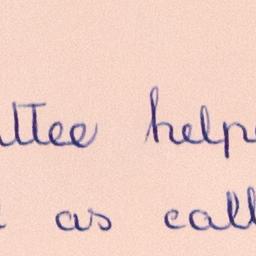 ttee help
as call